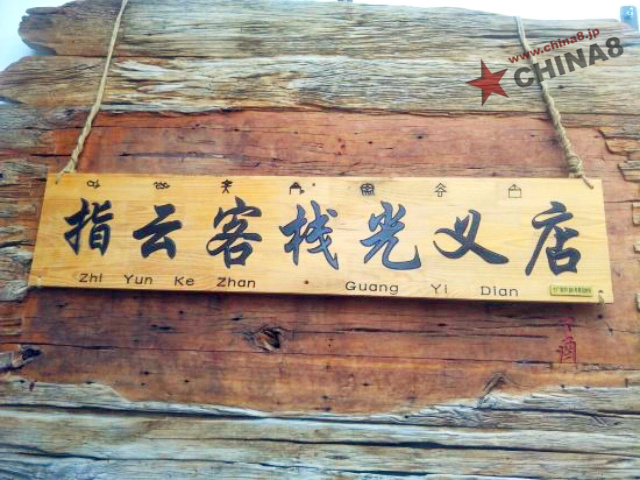 www.china8.jp
CHINA8
指云客栈光义店
Zhi Yun Ke Zhan Guang Yi Dian